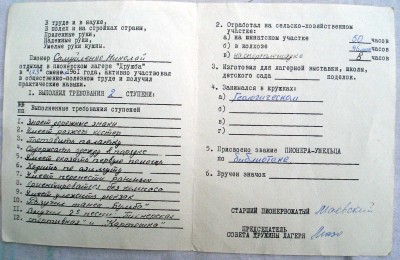 В труде и в науке,
В полях и на стройках страны,
Прилежные руки,
Надежные руки,
Умелые руки нужны.
Пионер Самуйленко Николай
отдыхал в пионерском лагере "Дружба"
в смену 1961 года, активно участвовал
в общественно-полезном труде и получил
практические навыки.
I. ВЫПОЛНИЛ ТРЕБОВАНИЯ 2 СТУПЕНИ:
Выполненные требования ступеней
1. Знает дорожные знаки
2. Умеет развести костер
3. Поставить палатку
4. Содержать одежду в порядке
5. Умеет оказать первую помощь
6. Ходить по азимуту
7. Умеет перенести раненых
8. Ориентироваться без компаса
9. Умеет уложить рюкзак
10. Разучил танец
11. Выучил песни "Пионерская
12. спортивная" и "Картошка"
2. Отработал на сельско-хозяйственном
участке:
а) на пришкольном участке 50 часов
б) в колхозе часов
в) 8 часов
3. Изготовил для лагерной выставки, школы,
детского сада поделок.
4. Занимался в кружках:
а) Геологическом
б)
в)
5. Присвоено звание ПИОНЕРА-УМЕЛЬЦА
по библиотеке
6. Вручен значок
СТАРШИЙ ПИОНЕРВОЖАТЫЙ Маевский
ПРЕДСЕДАТЕЛЬ
СОВЕТА ДРУЖИНЫ ЛАГЕРЯ